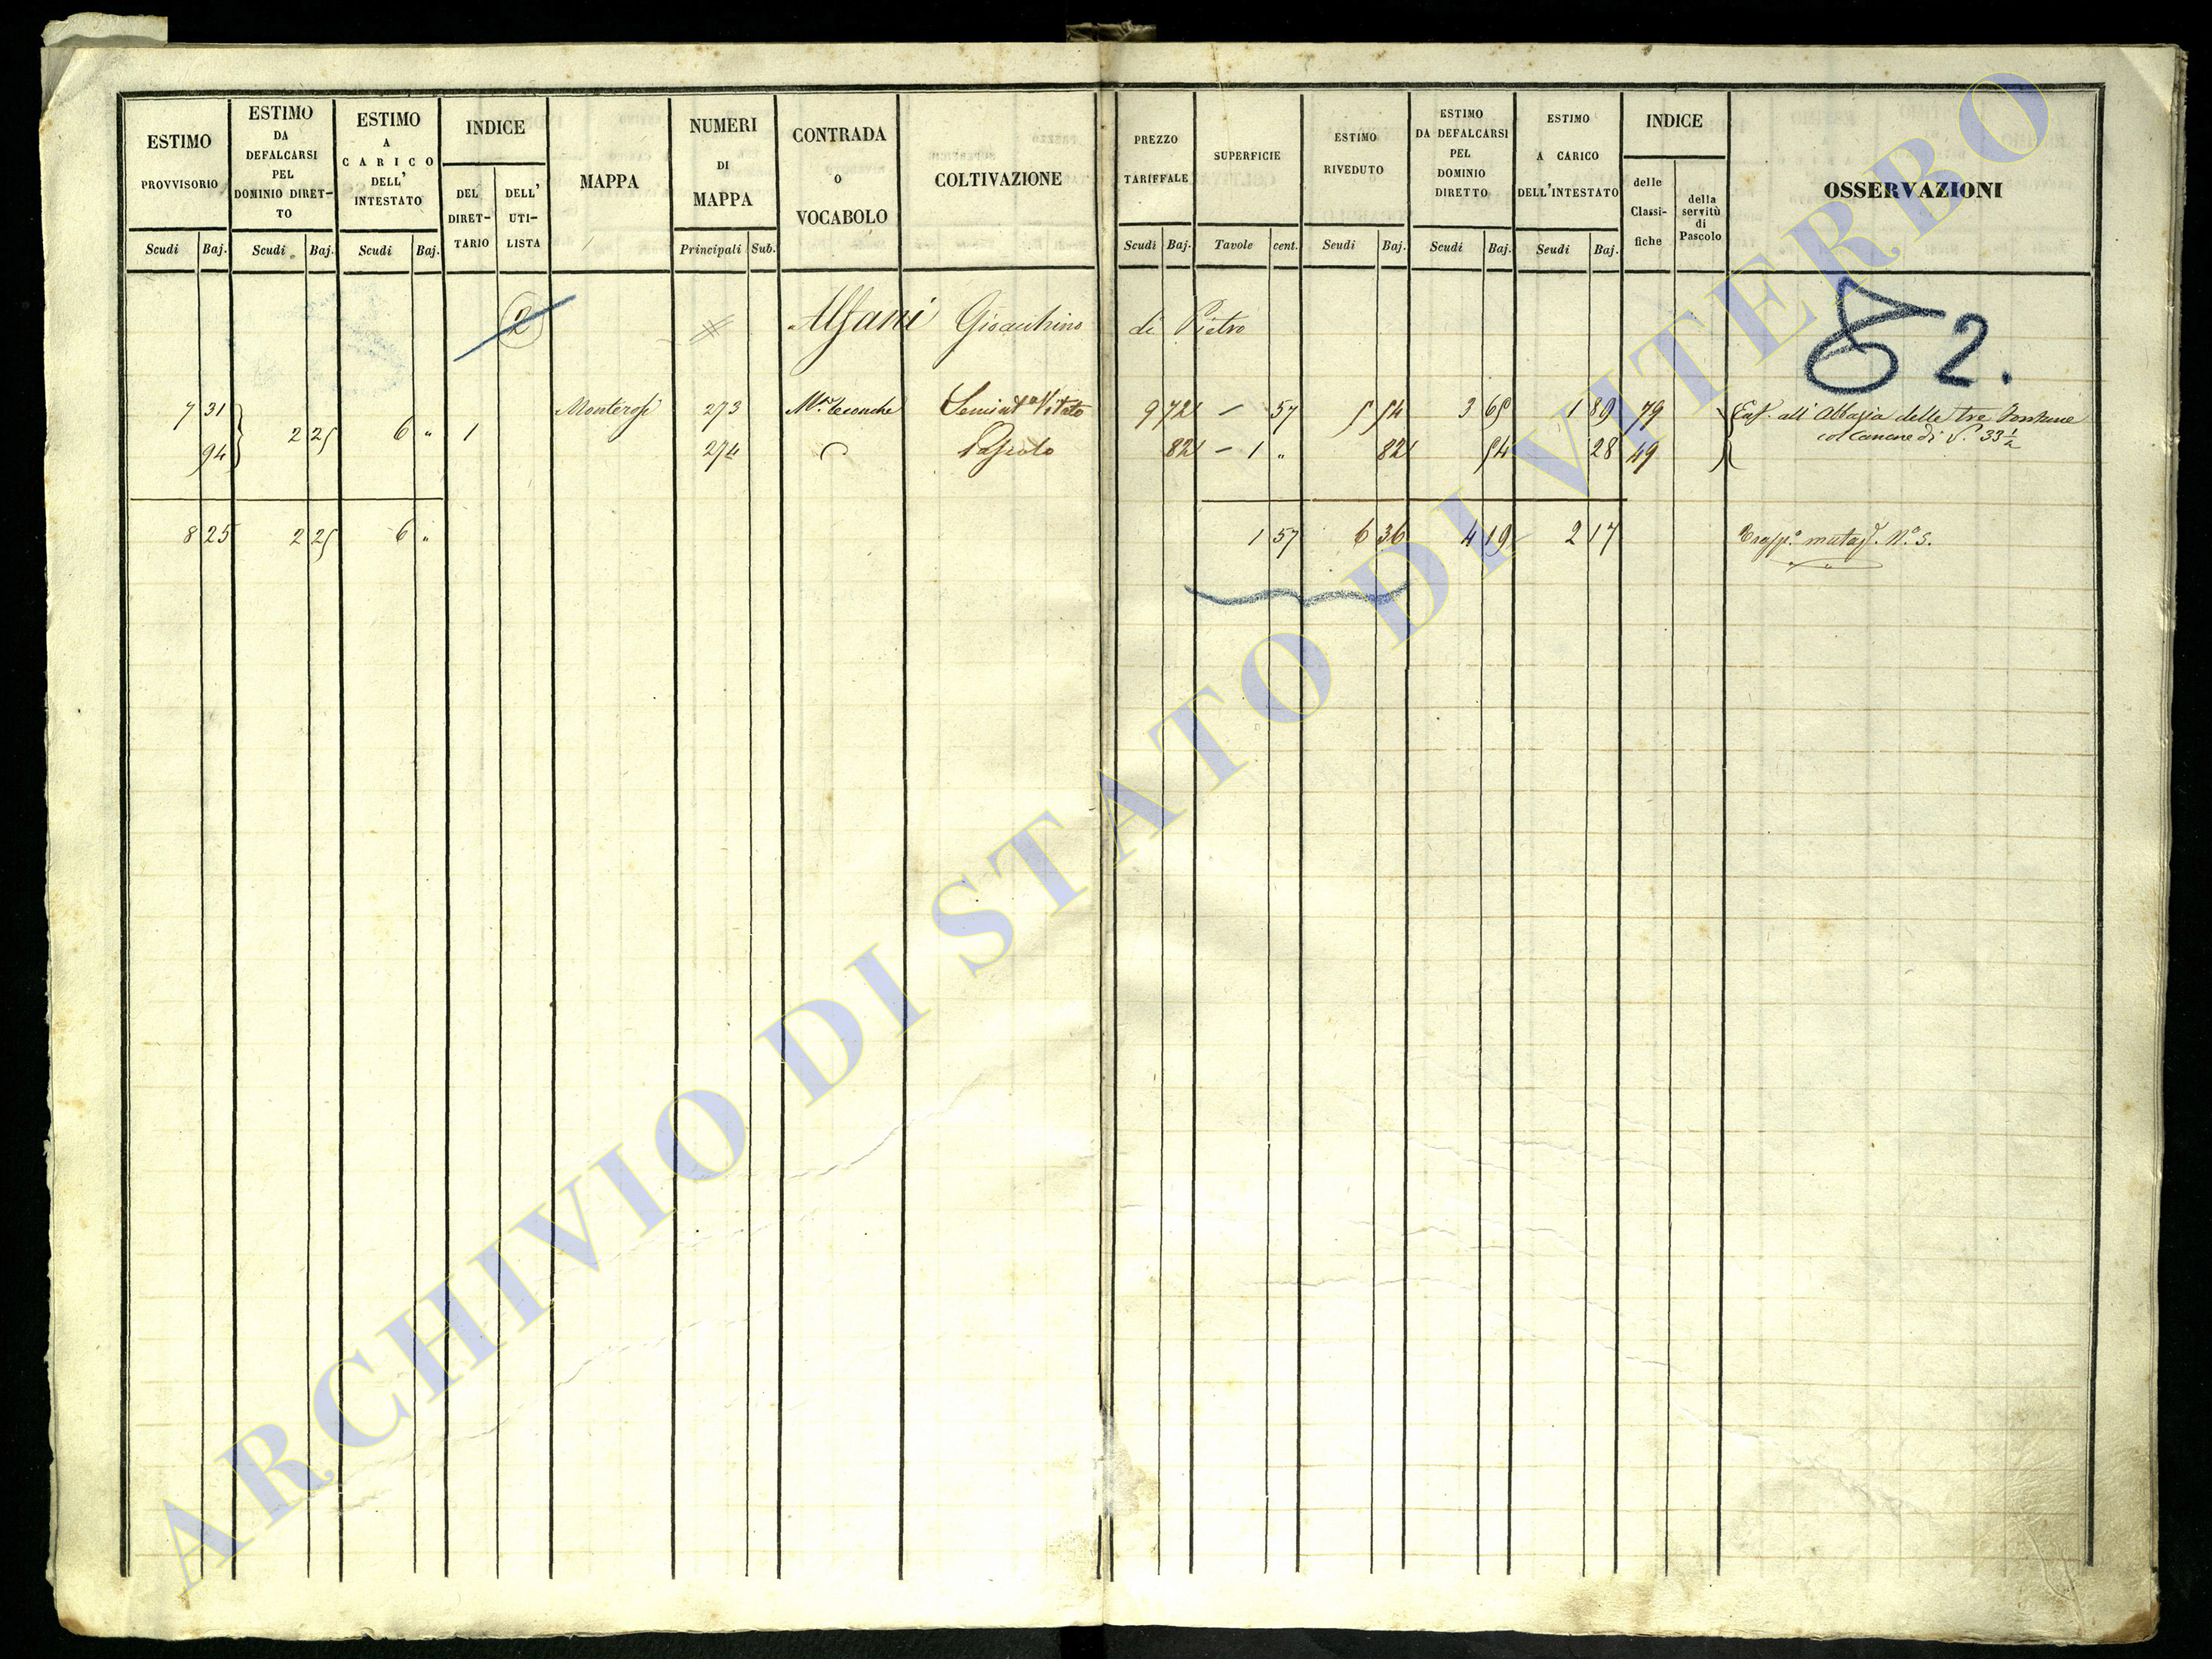 ESTIMO PROVVISORIO Scudi Baj.
ESTIMO DA DEFALCARSI PEL DOMINIO DIRET-TO Scudi Baj.
ESTIMO A CARICO DELL' INTESTATO Scudi Baj.
INDICE DEL DIRET-TARIO DELL' UTI-LISTA
MAPPA
NUMERI DI MAPPA Principali Sub.
CONTRADA O VOCABOLO
COLTIVAZIONE
PREZZO TARIFFALE Scudi Baj.
SUPERFICIE Tavole cent.
ESTIMO RIVEDUTO Scudi Baj.
ESTIMO DA DEFALCARSI PEL DOMINIO DIRETTO Scudi Baj.
ESTIMO A CARICO DELL'INTESTATO Scudi Baj.
INDICE delle Classi-fiche della servitù di Pascolo
OSSERVAZIONI
2 Alfani Gioacchino di Pietro 2.
7 31 2 25 6 " 1 Monterosi 273 Vitato 9 72 – 57 5 54 3 65 1 89 79 all' Abbazia delle tre Fontane
94 274 Pascolo 82 – 1 " 82 54 28 49 col canone di 33 ½
8 25 2 25 6 " 1 57 6 36 4 19 2 17 N.o 5.
ARCHIVIO DI STATO DI VITERBO